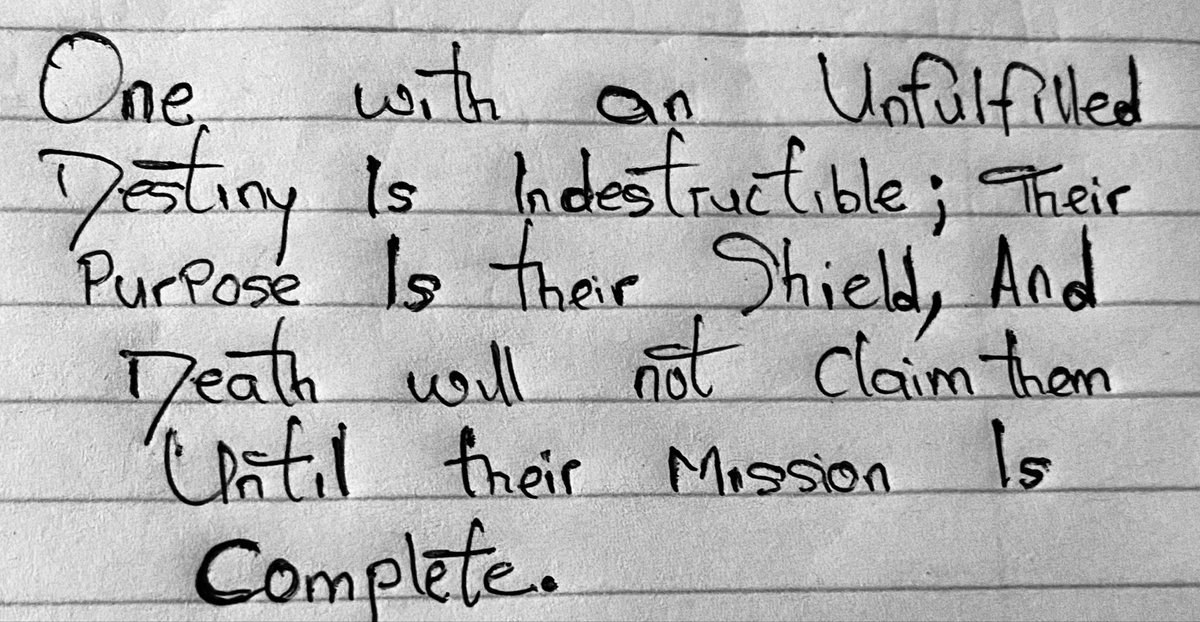 One with an Unfulfilled
Destiny Is Indestructible; Their
Purpose Is their Shield, And
Death will not Claim them
Until their Mission Is
Complete.